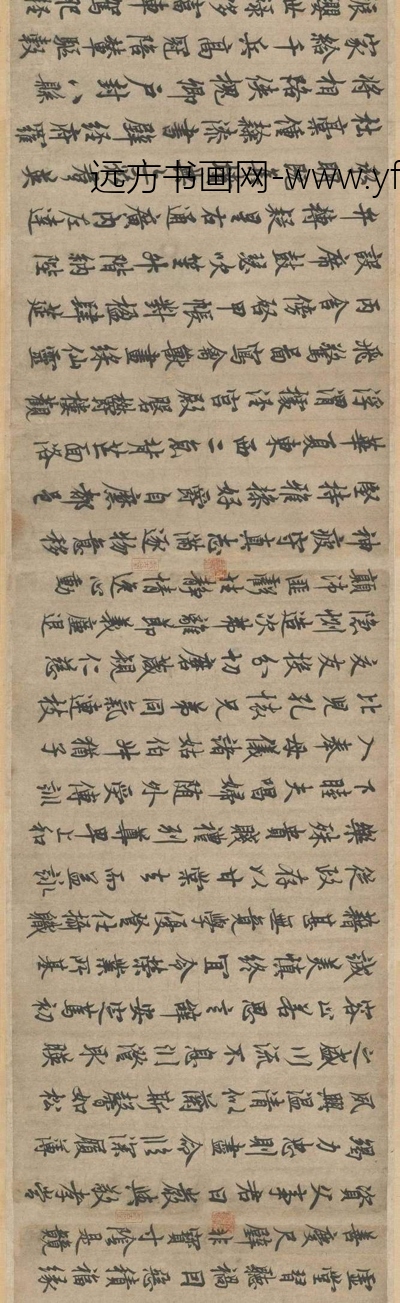 虛堂習聽禍因惡積福緣
善慶尺璧非寶寸陰是競
資父事君曰嚴與敬孝當
竭力忠則盡命臨深履薄
夙興溫凊似蘭斯馨如松
之盛川流不息淵澄取暎
容止若思言辭安定篤初
誠美慎終宜令榮業所基
籍甚無竟學優登仕攝職
從政存以甘棠去而益詠
樂殊貴賤禮別尊卑上和
下睦夫唱婦隨外受傅訓
入奉母儀諸姑伯叔猶子
比兒孔懷兄弟同氣連枝
交友投分切磨箴規仁慈
隱惻造次弗離節義廉退
顛沛匪虧性靜情逸心動
神疲守真志滿逐物意移
堅持雅操好爵自縻都邑
華夏東西二京背芒面洛
浮渭據涇宮殿盤鬱樓觀
飛驚圖寫禽獸畫綵仙靈
丙舍傍啓甲帳對楹肆筵
設席鼓瑟吹笙升階納陛
弁轉疑星右通廣內左達
英
杜稾鍾隸漆書壁經府羅
將相路俠槐卿戶封八縣
家給千兵高冠陪輦驅轂
纓世祿侈富車駕肥
远方书画网-www.yf